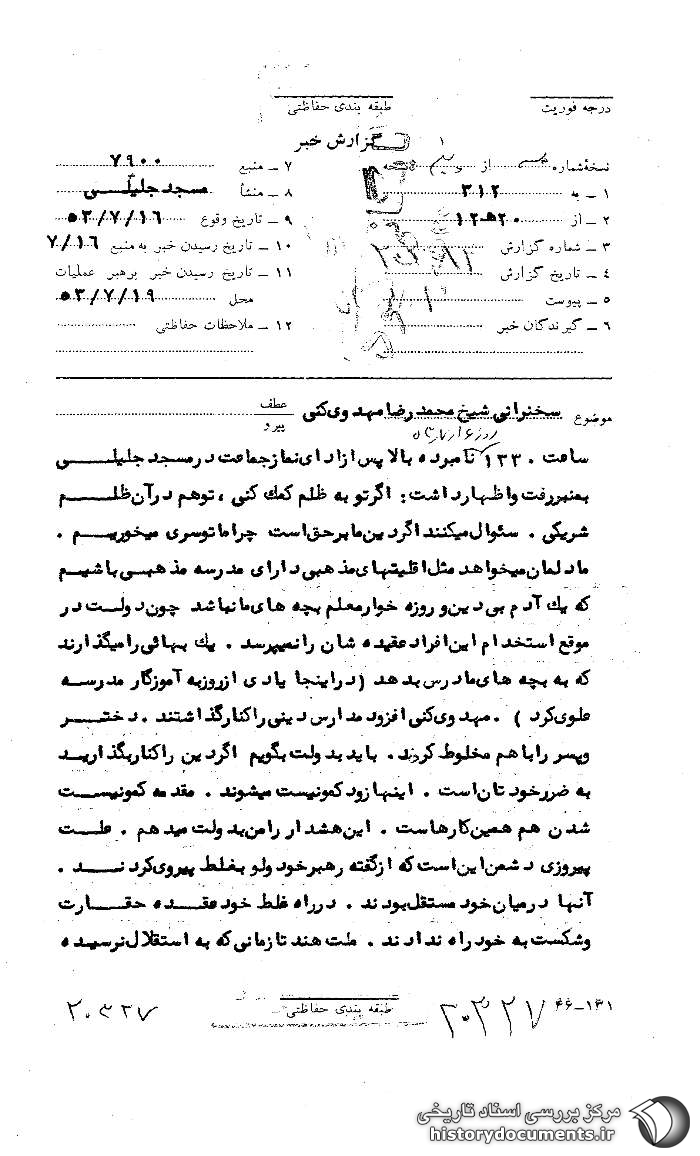 درجه فوریت
طبقه بندی حفاظتی
گزارش خبر
نسخهٔ شماره از
۱ - به ۳۱۲
۲ - از ۲۰ هـ ۱۲
۳ - شماره گزارش
۴ - تاریخ گزارش
۵ - پیوست
۶ - گیرندگان خبر
۷ - منبع ۷۹۰۰
۸ - منشأ مسجد جلیلی
۹ - تاریخ وقوع ۵۳/۷/۱۶
۱۰ - تاریخ رسیدن خبر به منبع ۷/۱۶
۱۱ - تاریخ رسیدن خبر برهبر عملیات
محل ۵۳/۷/۱۹
۱۲ - ملاحظات حفاظتی
موضوع سخنرانی شیخ محمد رضا مهدوی کنی
عطف
پیرو
ساعت ۱۳۳۰ نامبرده بالا پس از ادای نماز جماعت در مسجد جلیلی
بمنبر رفت و اظهار داشت : اگر تو به ظلم کمک کنی ، تو هم در آن ظلم
شریکی . سئوال میکنند اگر دین ما بر حق است چرا ما توسری میخوریم .
ما دلمان میخواهد مثل اقلیتهای مذهبی دارای مدرسه مذهبی باشیم
که یک آدم بی دین و روزه خوار معلم بچه های ما نباشد چون دولت در
موقع استخدام این افراد عقیده شان را نمیپرسد . یک بهائی را میگذارند
که به بچه های ما درس بدهد ( در اینجا یادی از روزبه آموزگار مدرسه
علوی کرد ) . مهدوی کنی افزود مدارس دینی را کنار گذاشتند . دختر
و پسر را با هم مخلوط کردند . باید بدولت بگویم اگر دین را کنار بگذارید
به ضرر خودتان است . اینها زود کمونیست میشوند . مقدمه کمونیست
شدن هم همین کارهاست . این هشدار را من بدولت میدهم . علت
پیروزی دشمن این است که از گفته رهبر خود ولو بغلط پیروی کردند .
آنها در میان خود مستقل بودند . در راه غلط خود عقده حقارت
و شکست به خود راه ندادند . ملت هند تا زمانی که به استقلال نرسیده
طبقه بندی حفاظتی
۲۰۳۲۷
۲۰۳۲۷
۳۶-۱۳۱
مرکز بررسی اسناد تاریخی
historydocuments.ir